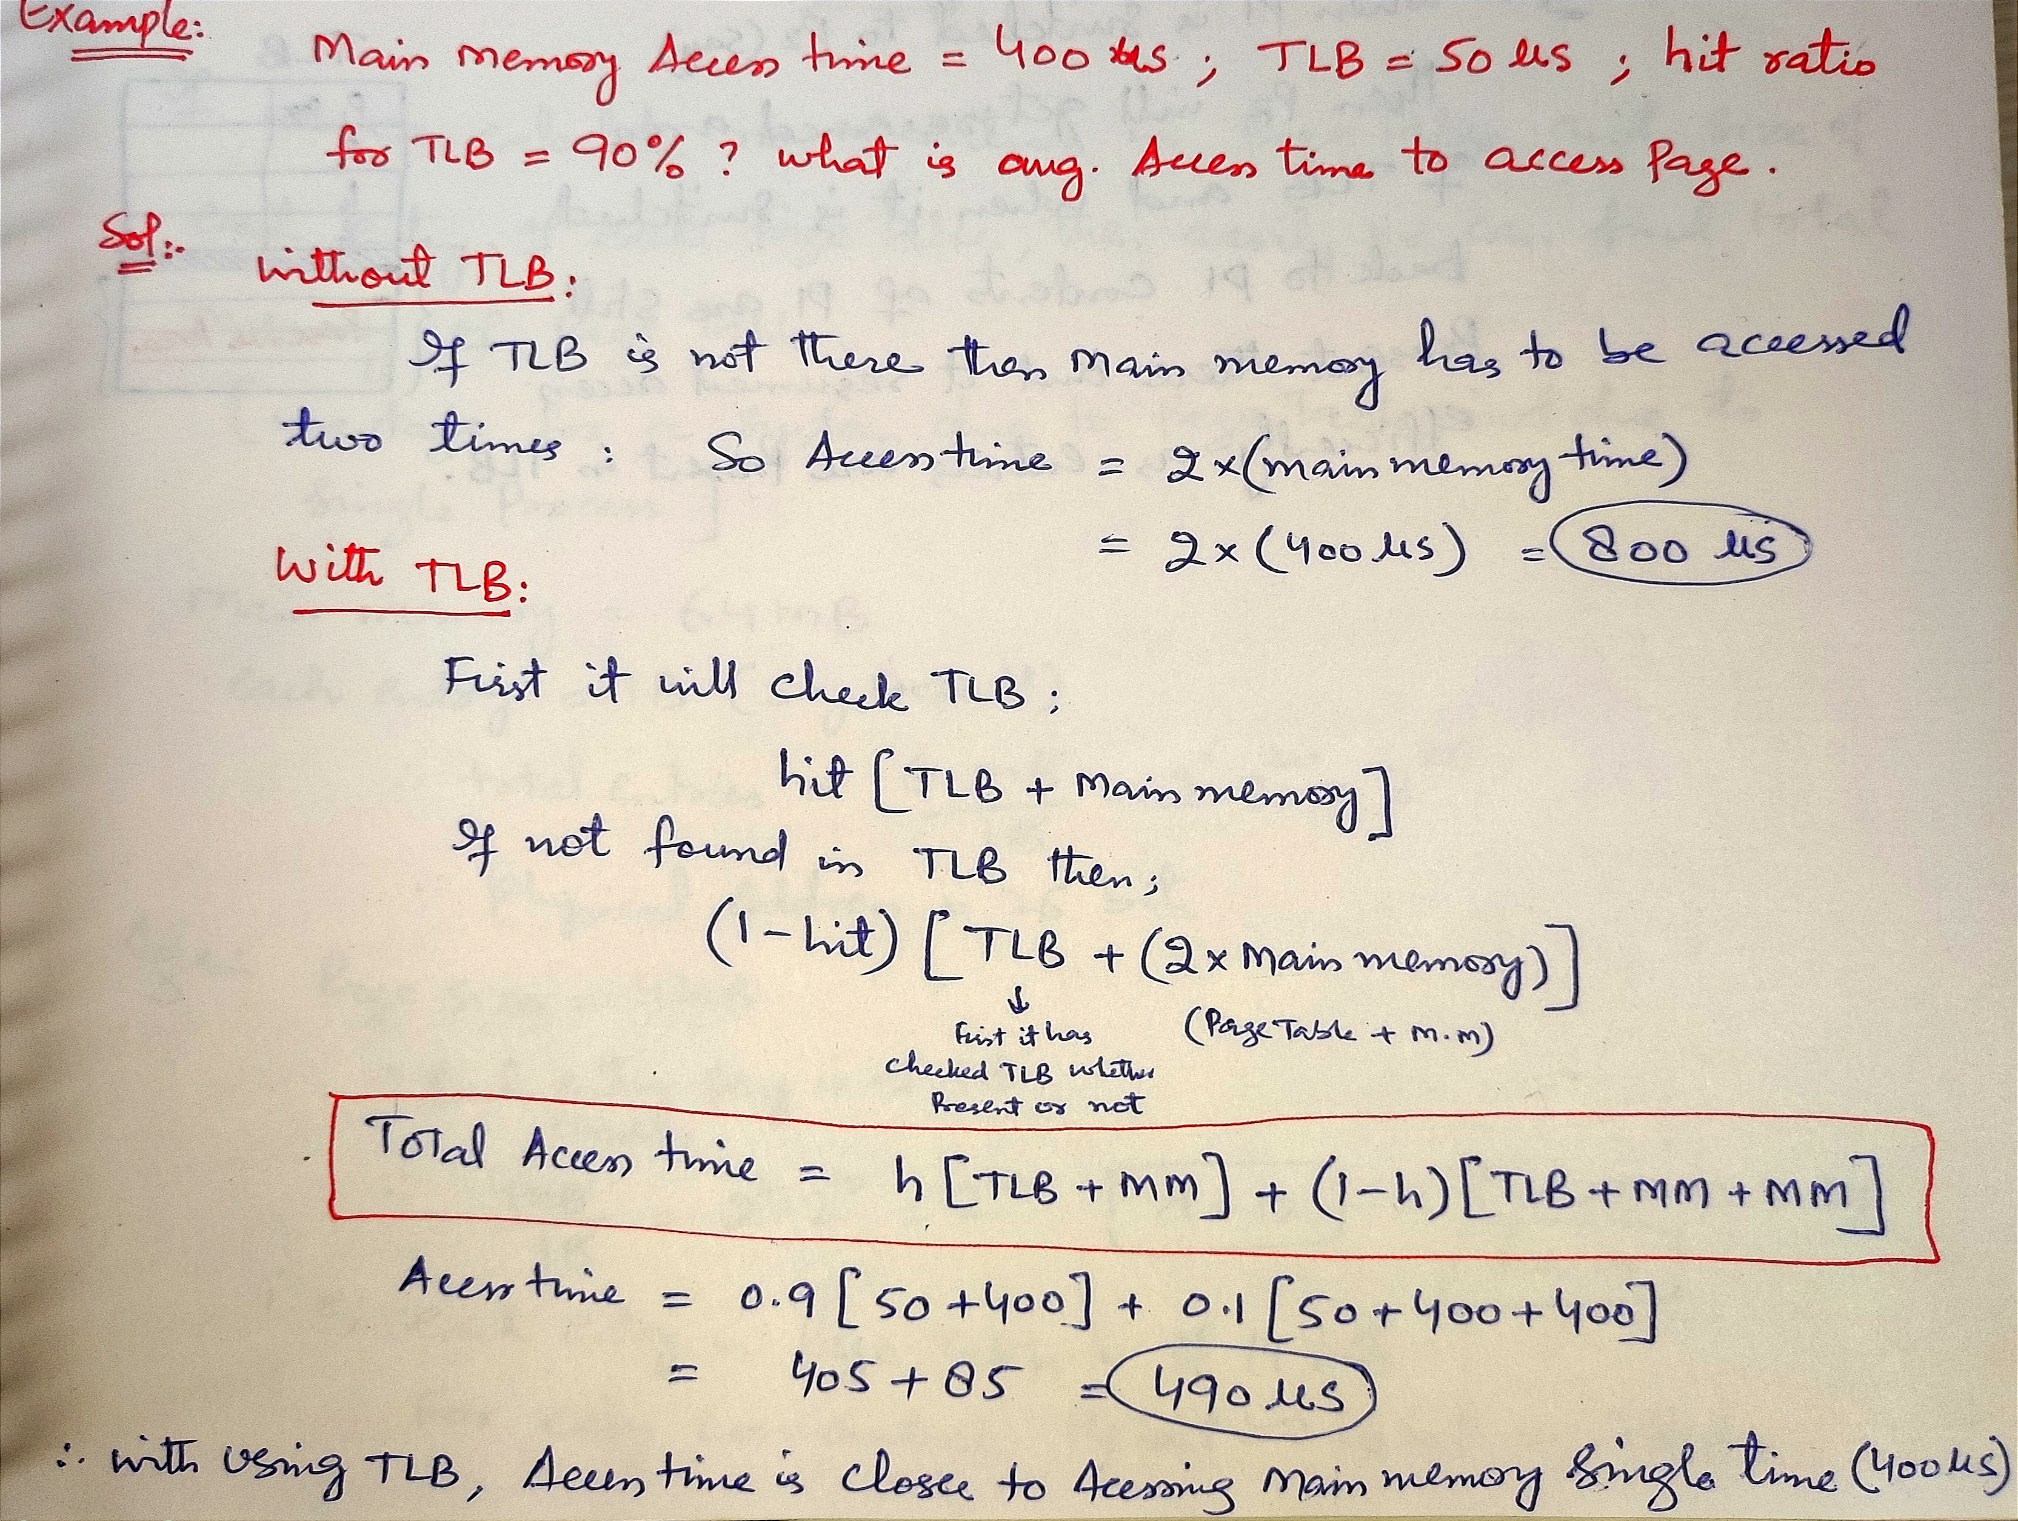 Example:
Main memory Access time = 400 us ; TLB = 50 us ; hit ratio
for TLB = 90% ? what is avg. Access time to access Page.
Sol:-
without TLB:
If TLB is not there then Main memory has to be accessed
two times : So Access time = 2x(main memory time)
= 2x(400 us) = 800 us
With TLB:
First it will check TLB ;
hit [TLB + Main memory]
If not found in TLB then;
(1-hit) [TLB + (2x Main memory)]
↓
First it has
checked TLB whether
Present or not
(Page Table + m.m)
Total Access time = h[TLB + MM] + (1-h)[TLB + MM + MM]
Access time = 0.9[50+400] + 0.1[50+400+400]
= 405 + 85 = 490 us
∴ with using TLB, Access time is closee to Acessing Main memory Single time (400us)